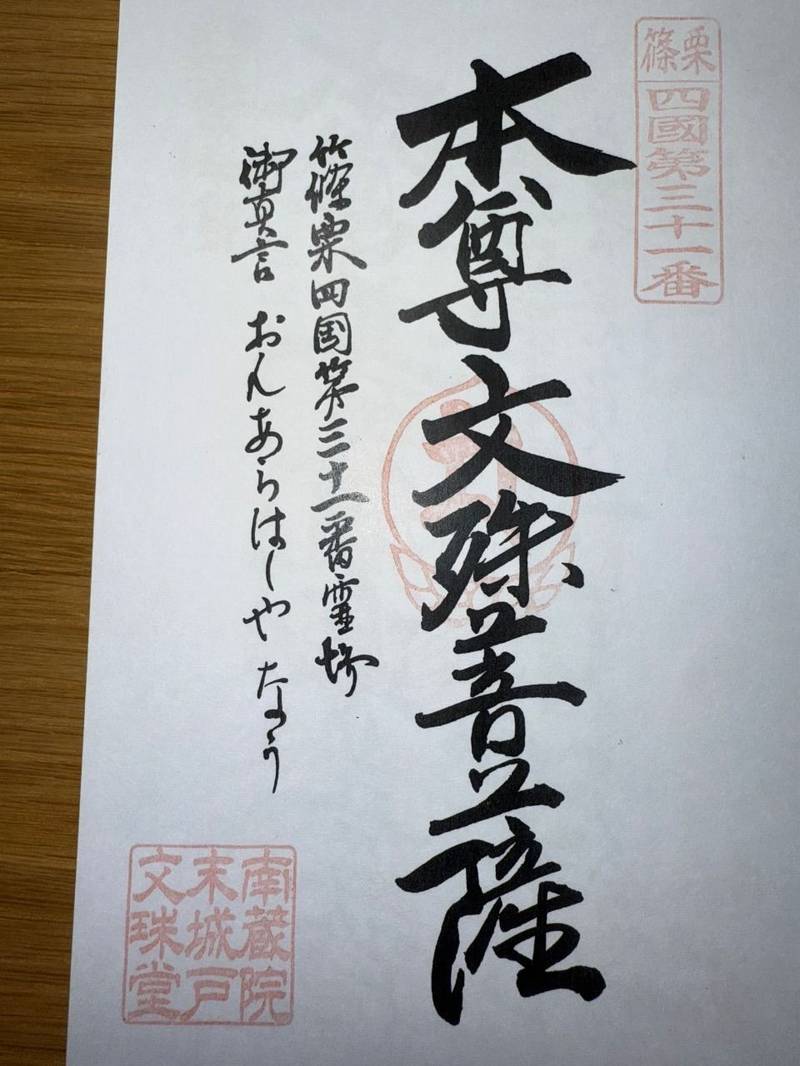 篠栗
四國第三十一番
本尊文殊菩薩
篠栗四国第三十一番霊場
御真言 おんあらはしやなう
南蔵院
末城戸
文珠堂